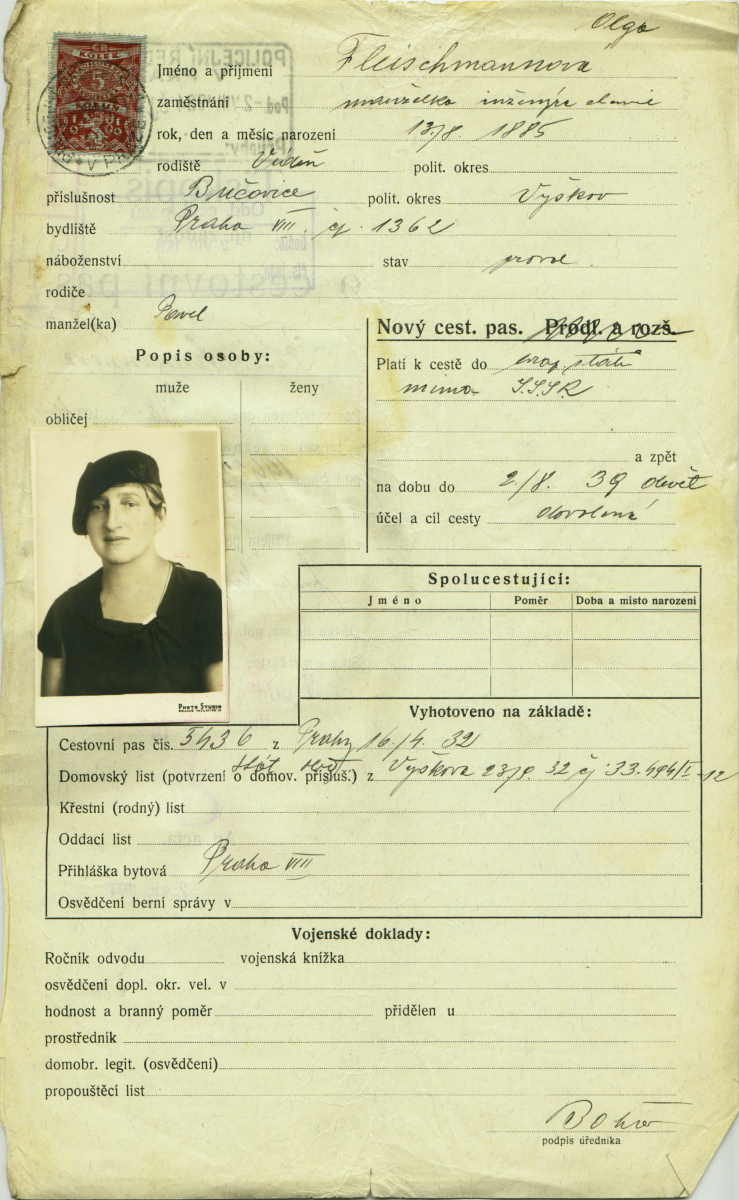 Olga
Jméno a příjmení Fleischmannova
zaměstnání manželka inženýra chemie
rok, den a měsíc narození 13/8 1885
rodiště Vídeň polit. okres
příslušnost Bučovice polit. okres Vyškov
bydliště Praha VIII. čj. 1362
náboženství stav provd.
rodiče
manžel(ka) Pavel
Nový cest. pas. Prodl. a rozš.
Popis osoby:
Platí k cestě do evrop. států
muže ženy
mimo S.S.S.R
obličej
a zpět
na dobu do 2/8. 39 devět
účel a cíl cesty dovolená
Spolucestující:
Jméno Poměr Doba a místo narození
PHOTO STUDIO
Vyhotoveno na základě:
Cestovní pas čís. 5436 z Prahy 16/4. 32
Domovský list (potvrzení o domov. přísluš.) z Vyškova 23/8. 32 čj. 33.494/I-12
Křestní (rodný) list
Oddací list
Přihláška bytová Praha VIII
Osvědčení berní správy v
Vojenské doklady:
Ročník odvodu vojenská knížka
osvědčení dopl. okr. vel. v
hodnost a branný poměr přidělen u
prostředník
domobr. legit. (osvědčení)
propouštěcí list
podpis úředníka